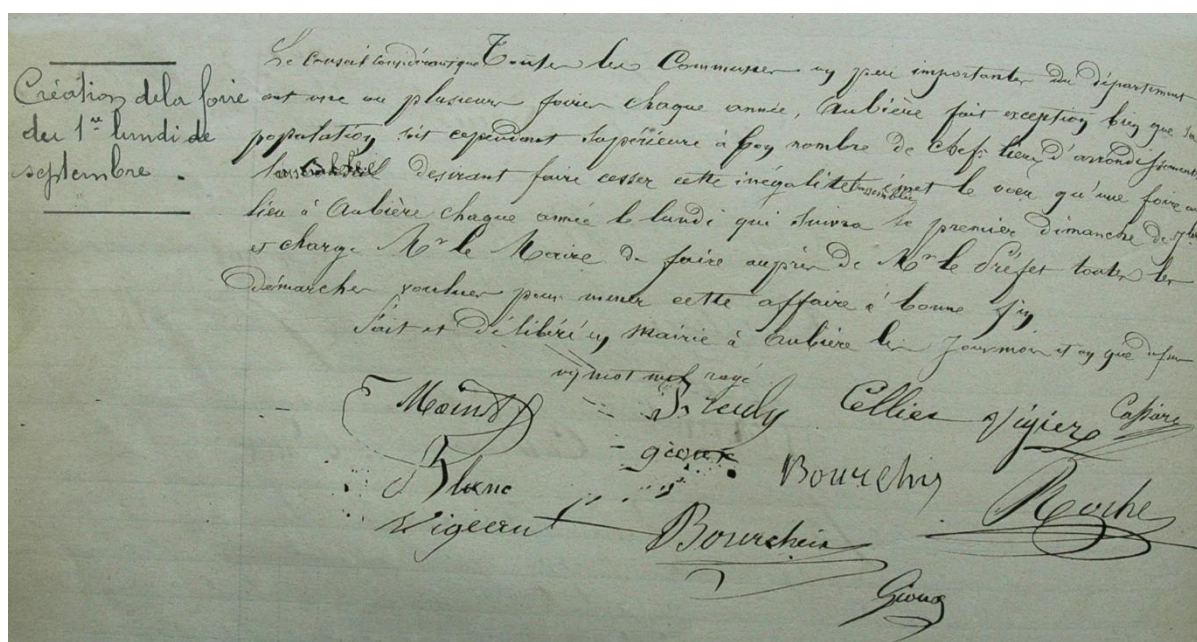 Création de la foire
du 1er lundi de
septembre.
Le Conseil considérant que Toutes les Communes un peu importantes du département
ont une ou plusieurs foires chaque année, Aubière fait exception bien que sa
population soit cependant supérieure à bon nombre de chefs lieux d'arrondissements
desirant faire cesser cette inégalité émet le voeu qu'une foire ait
lieu à Aubière chaque année le lundi qui suivra le premier dimanche de 7bre
et charge Mr le Maire de faire auprès de Mr le Préfet toutes les
démarches voulues pour mener cette affaire à bonne fin
Fait et délibéré en mairie à Aubière les jour mois et an que dessus
un mot nul rayé
Cellier Vigier
gioux
Blanc Bourcheix Roche
Bourcheix
Gioux